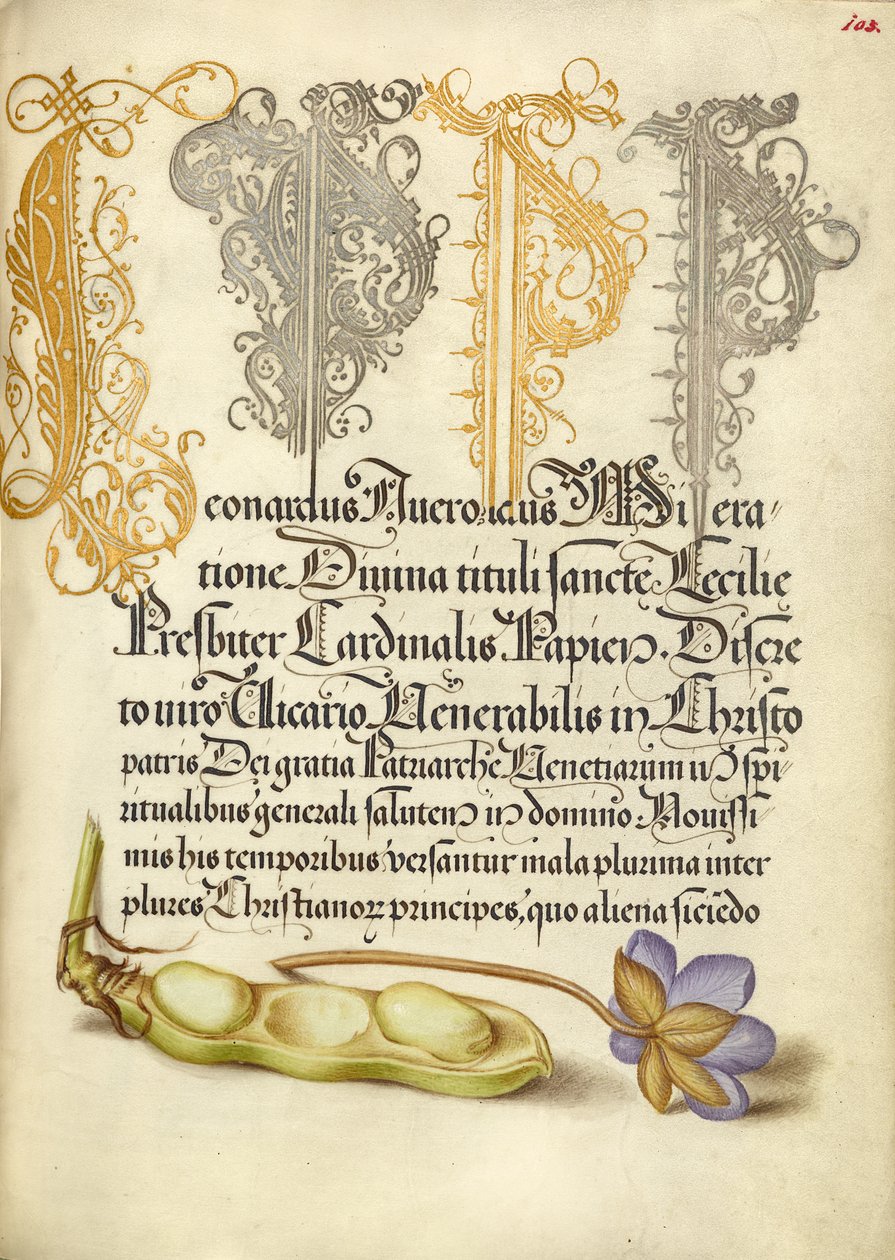 103.
L P P P
eonardus Mi era/
tione Diuina tituli sanctę Cecilię
Presbiter Cardinalis Papien. Discre
to uiro Vicario Venerabilis in Christo
patris Dei gratia Patriarche Venetiarum in spi/
ritualibus generali salutem in domino. Nouissi/
mis his temporibus versantur mala plurima inter
plures Christianoꝝ principes, quo aliena siciēdo